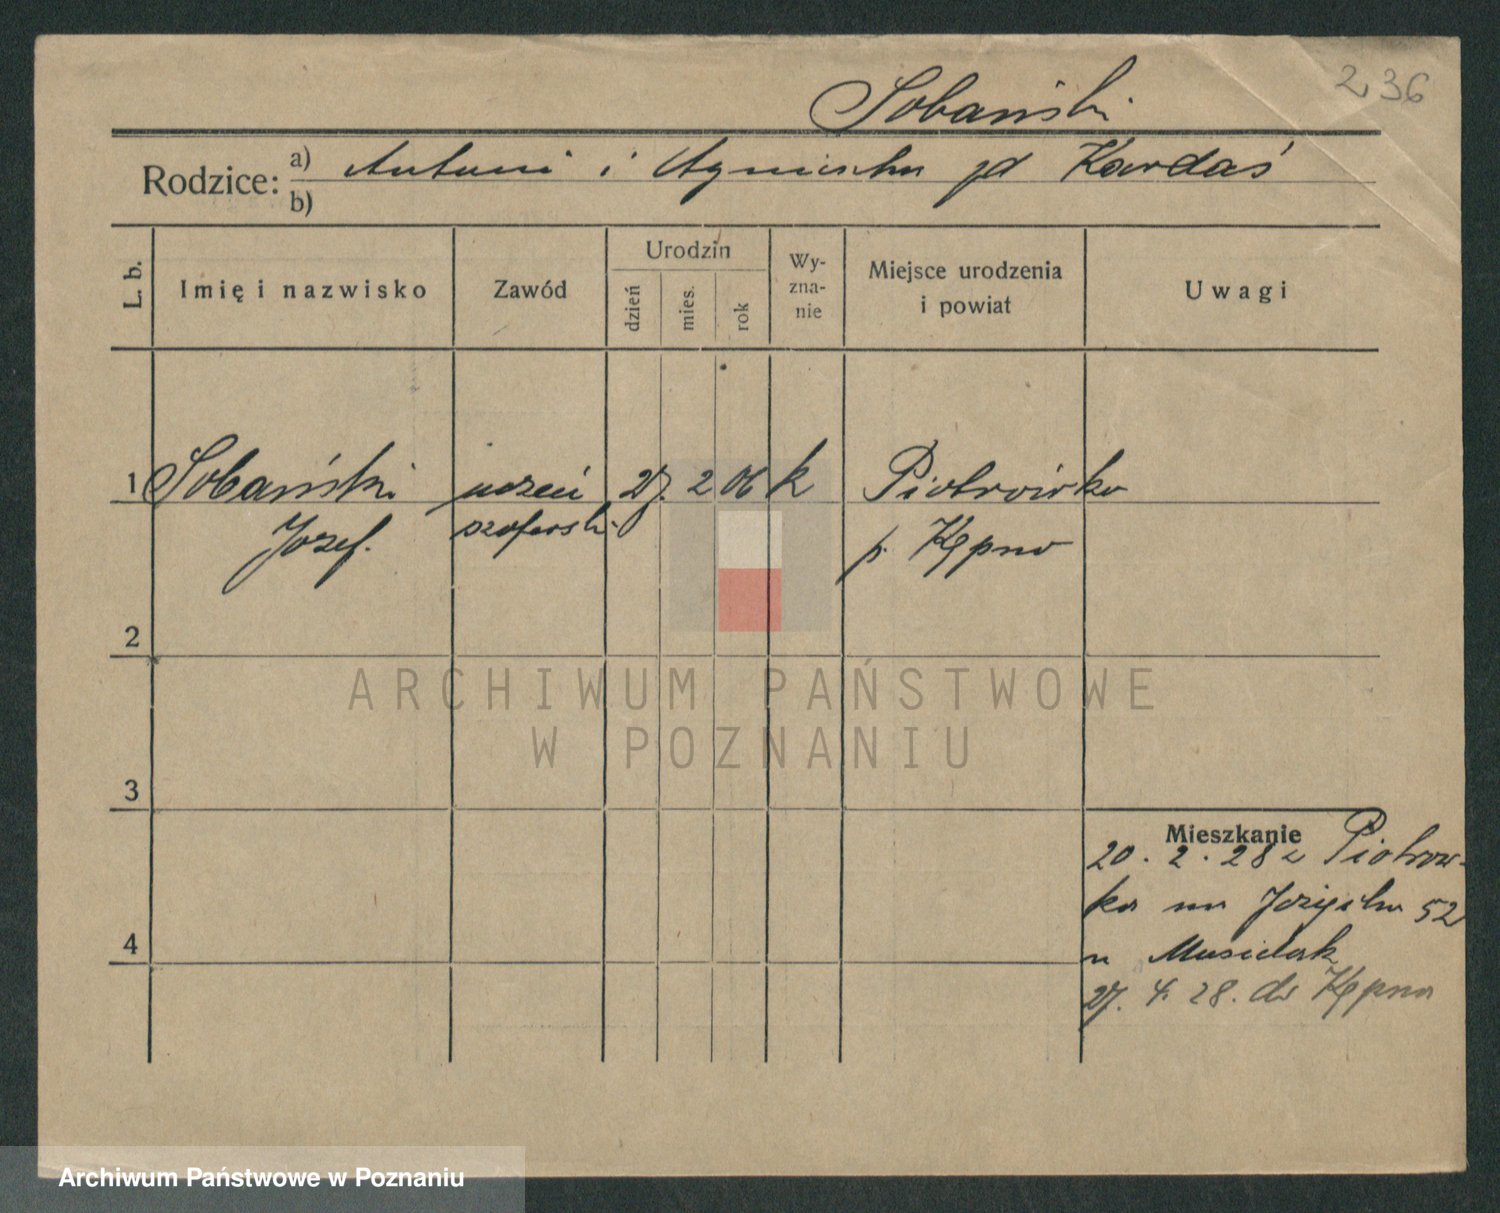 236
Sobański
Rodzice: a) Antoni i Agnieszka zd Kardaś
b)
L. b.
Imię i nazwisko
Zawód
Urodzin
dzień
mies.
rok
Wy-
zna-
nie
Miejsce urodzenia
i powiat
Uwagi
1 Sobański uczeń 27. 2 06 k Piotrówka
Józef. szofersk. p. Kępno
2
ARCHIWUM PAŃSTWOWE
W POZNANIU
3
Mieszkanie
20. 2. 28 z Piotrow-
ka na 52
u Musielak
4
27. 4. 28. do Kępna
Archiwum Państwowe w Poznaniu